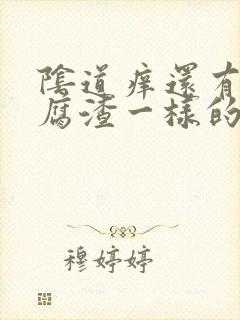 陰道痒還有
腐渣一樣的
穆婷婷